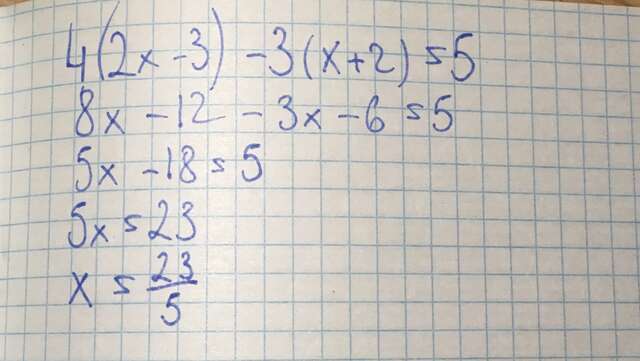 4(2x-3) -3(x+2) =5
8x -12 -3x -6 =5
5x -18 =5
5x =23
x = 23/5